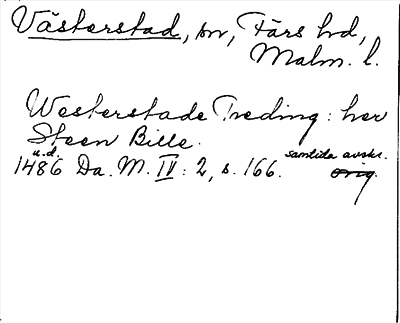 Västerstad, sn, Färs hd,
Malm. l.
Westerstade Treding: her
Steen Bille.
u.d. samtida avskr.
1486 Da. M. IV: 2, s. 166. orig.